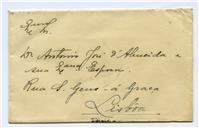 Dr. Antonio José d'Almeida e
sua Exma Esposa
Rua S. Gens - á Graça
Lisboa